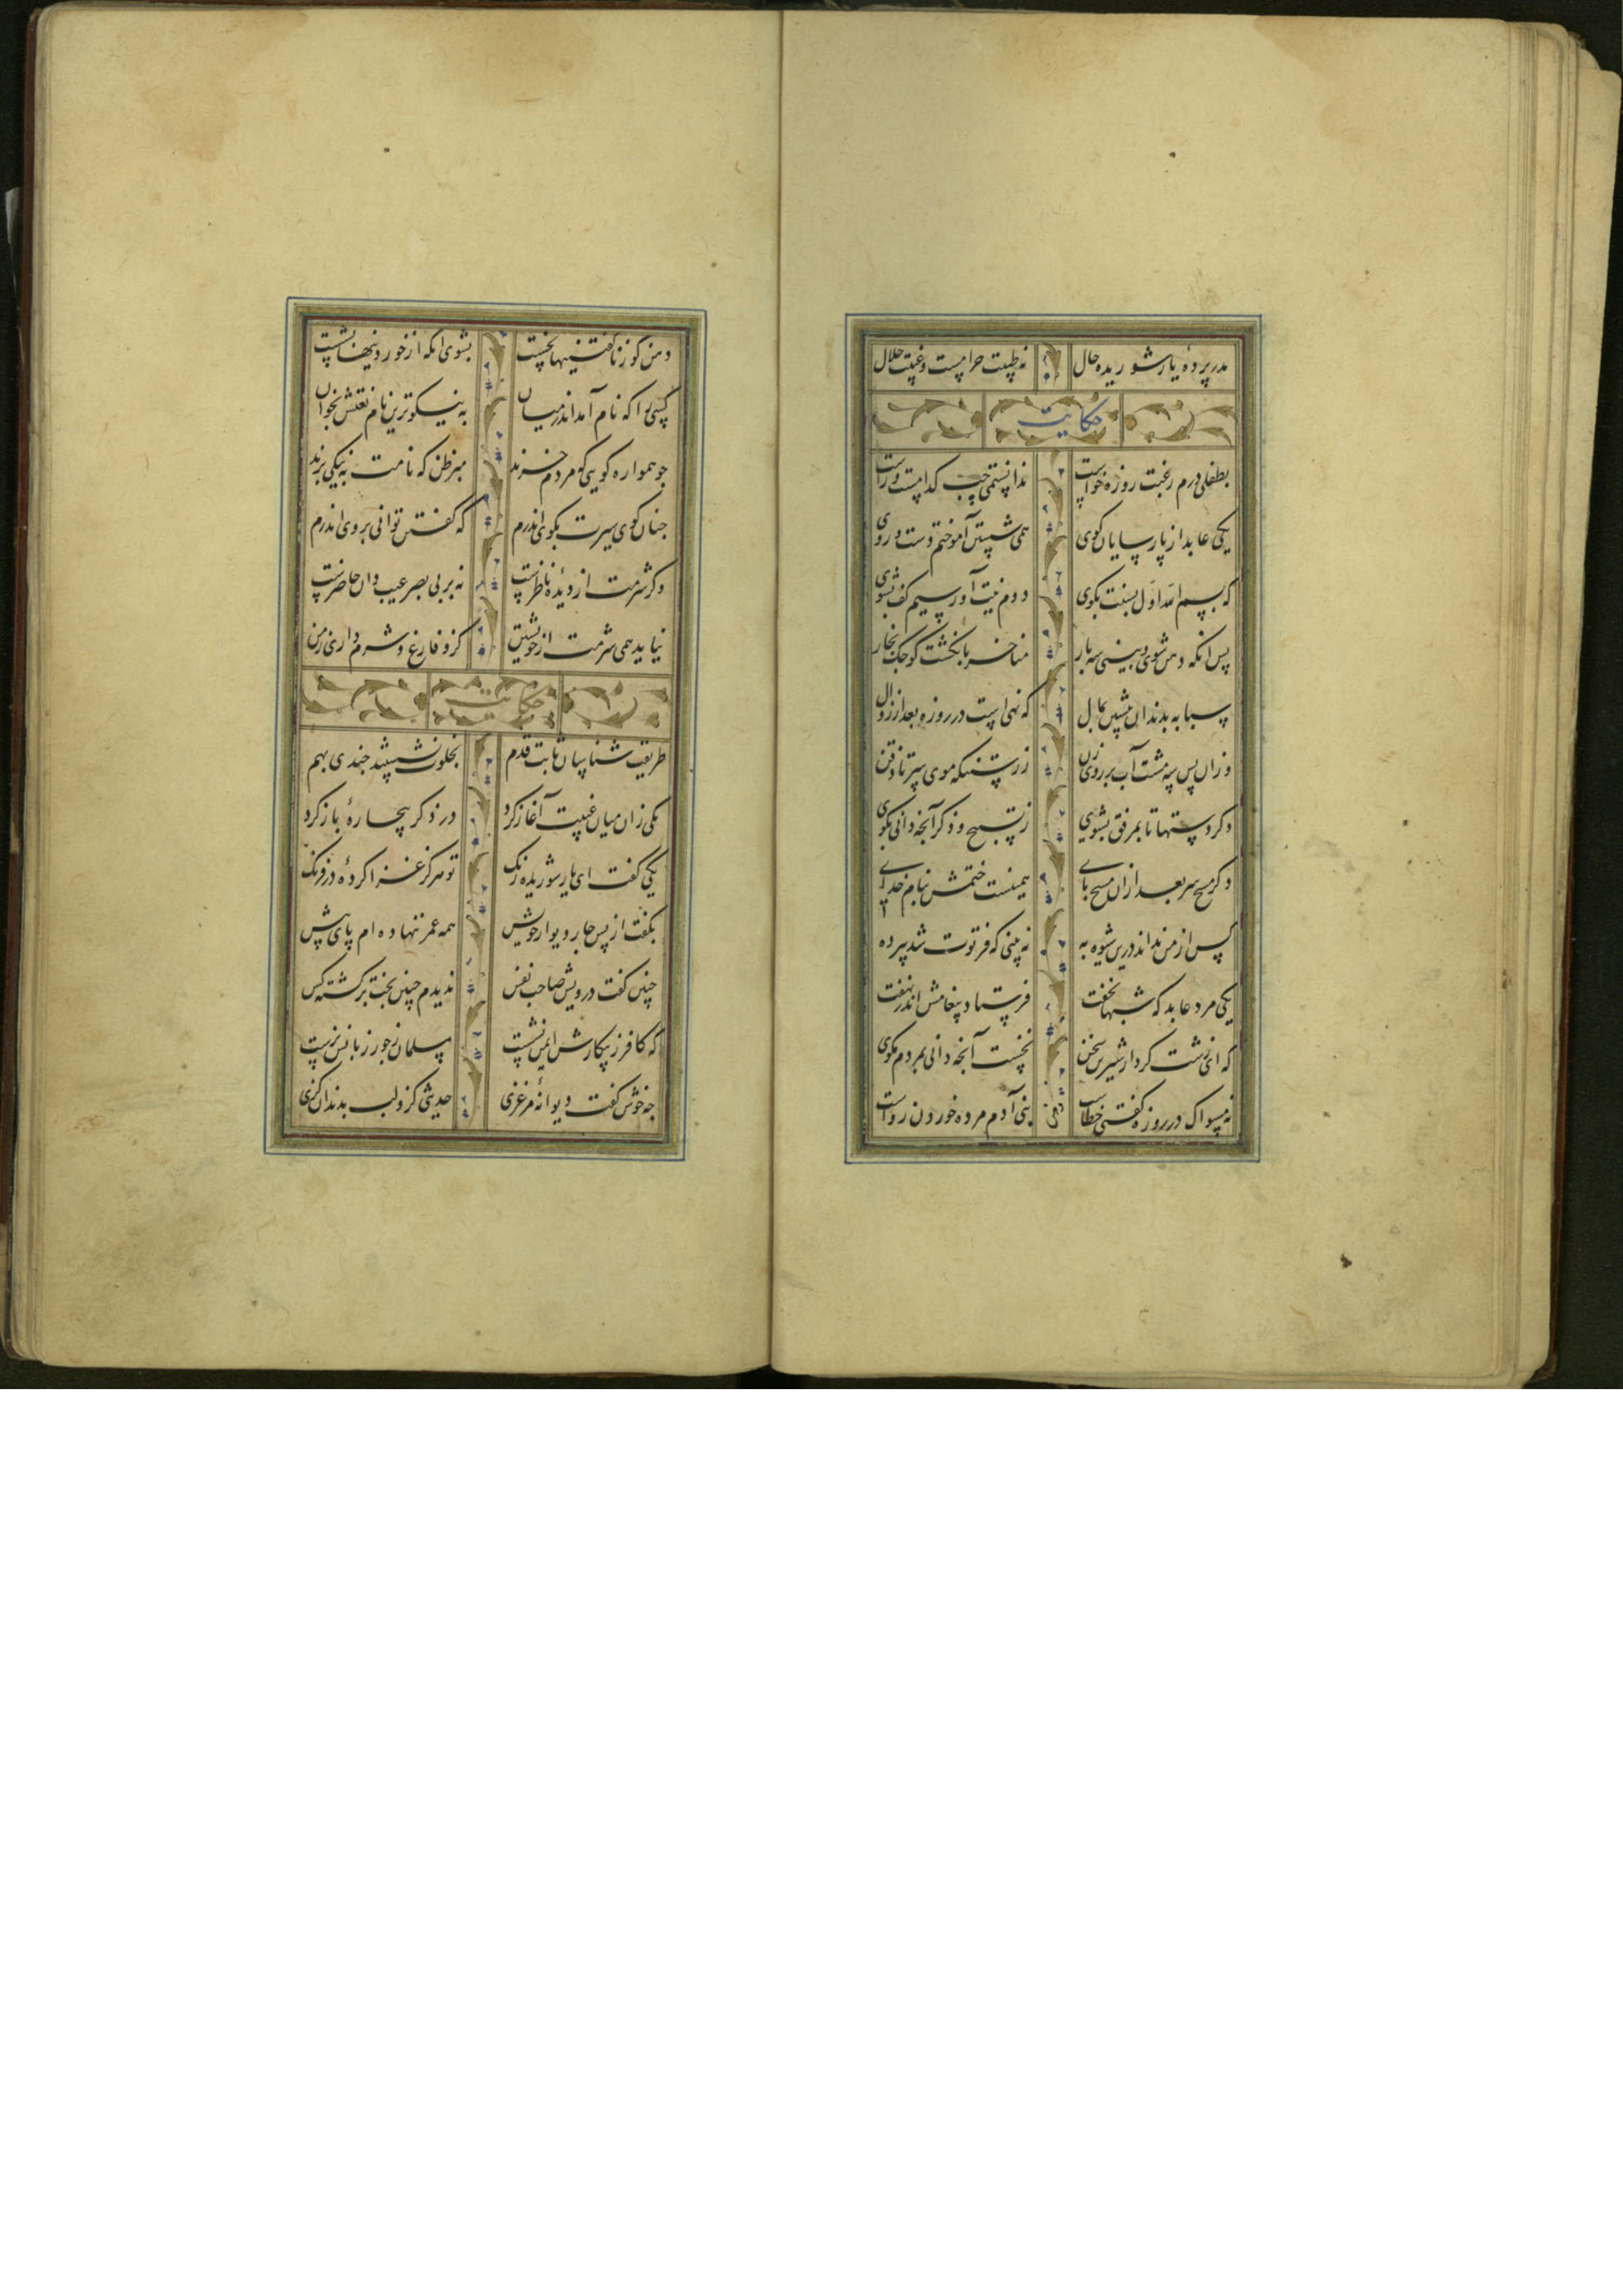 مدر پردهٔ یار شوریده حال نه طیبت حرامست و غیبت حلال
حکایت
بطفلی درم رغبت روزه خواست ندانستمی چپ کدامست و راست
یکی عابد از پارسایان کوی همی شستن آموختم دست و روی
که بسم الله اول بسنت بکوی دوم نیت آور سیم کف بشوی
پس آنکه دهن شوی و بینی سه بار مناخر بانکشت کوچک بخار
بسبابه دندان پیشین بمال که نهی است در روزه بعد از زوال
وزان پس سه مشت آب بر روی زن ز رستنکه موی سر تا ذقن
دکر دستها تا بمرفق بشوی ز تسبیح و ذکر آنچه دانی بکوی
دکر مسح سر بعد ازان مسح پای همینست ختمش بنام خدای
کس از من نداند درین شیوه به نه بینی که فرتوت شد پیر ده
یکی مرد عابد که شبها نخفت فرستاد پیغامش اندر نهفت
که ای زشت کردار شیرین سخن نخست آنچه دانی بمردم مکوی
نه مسواک در روزه کفتی خطاست بنی آدم مرده خوردن رواست
دهن
دهن کو ز ناکفتنیها نخست بشوی آنکه از خوردنیها بشست
کسی را که نام آمد اندر میان به نیکوترین نام نعتش بخوان
چو همواره کویی که مردم خرند مبر ظن که نامت به نیکی برند
چنان کوی سیرت بکوی اندرم که کفتن توانی بروی اندرم
وکر شرمت از دیدهٔ ناظرست نه بر بی بصر غیب دان حاضرست
نیاید همی شرمت از خویشتن کزو فارغ و شرم داری ز من
حکایت
طریقت شناسان ثابت قدم بخلوت نشستند چندی بهم
یکی زان میان غیبت آغاز کرد در ذکر بیچارهٔ باز کرد
یکی کفت ای یار شوریده رنک تو هرکز غزا کردهٔ در فرنک
بکفت از پس چار دیوار خویش همه عمر ننهاده ام پای پیش
چنین کفت درویش صاحب نفس ندیدم چنین بخت برکشته کس
که کافر ز پیکارش ایمن نشست مسلمان ز جور زبانش نرست
چه خوش کفت دیوانهٔ مرغزی حدیثی کزو لب بدندان کزی